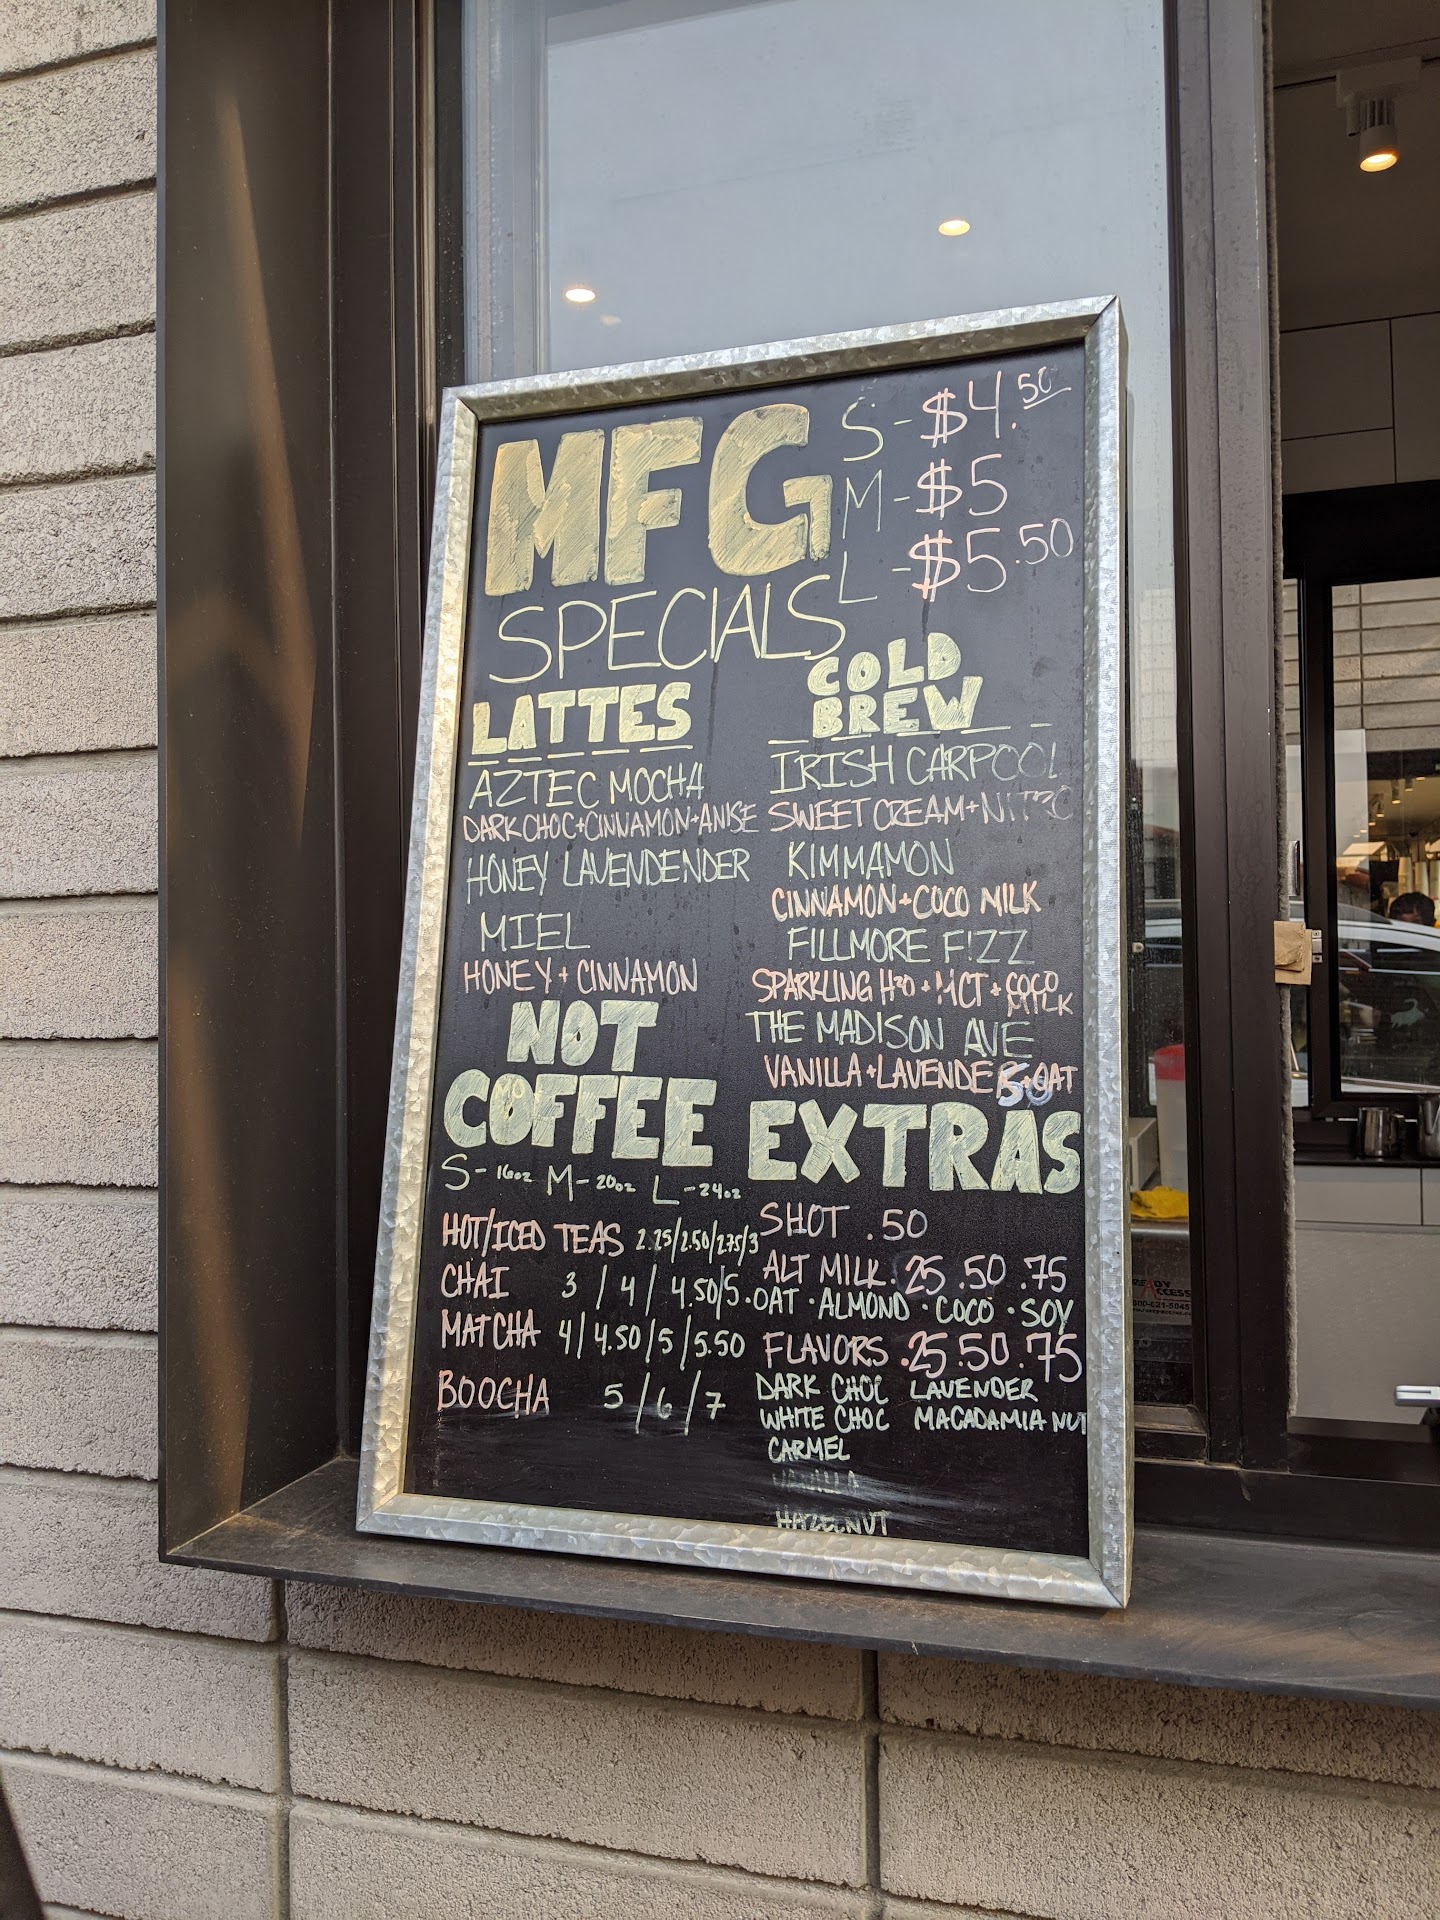 MFG
SPECIALS
S - $4.50
M - $5
L - $5.50
LATTES
AZTEC MOCHA
DARK CHOC+CINNAMON+ANISE
HONEY LAVENDENDER
MIEL
HONEY + CINNAMON
COLD
BREW
IRISH CARPOOL
SWEET CREAM+NITRO
KIMMAMON
CINNAMON+COCO MILK
FILLMORE F!ZZ
SPARKLING H2O + MCT + COCO MILK
THE MADISON AVE
VANILLA+LAVENDER+OAT
NOT
COFFEE
S - 16oz M - 20oz L - 24oz
HOT/ICED TEAS 2.25/2.50/2.75/3
CHAI 3 / 4 / 4.50/5
MATCHA 4/4.50/5/5.50
BOOCHA 5/6/7
EXTRAS
SHOT .50
ALT MILK .25 .50 .75
·OAT ·ALMOND ·COCO ·SOY
FLAVORS .25 .50 .75
DARK CHOC LAVENDER
WHITE CHOC MACADAMIA NUT
CARMEL
VANILLA
HAZELNUT
READY
ACCESS
800-621-5045